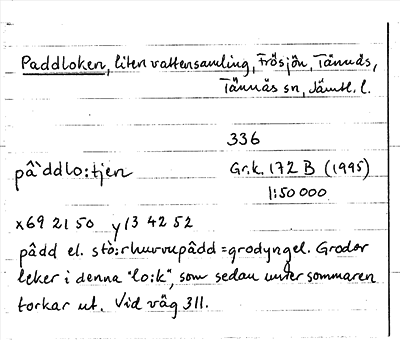 Paddloken, liten vattensamling, Frösjön, Tännäs,
Tännäs sn, Jämtl. l.
336
pâ`ddlo:tjen Gr.k. 172 B (1995)
1:50 000
x69 21 50 y13 42 52
pâdd el. = grodyngel. Grodor
leker i denna "lo:k", som sedan under sommaren
torkar ut. Vid väg 311.